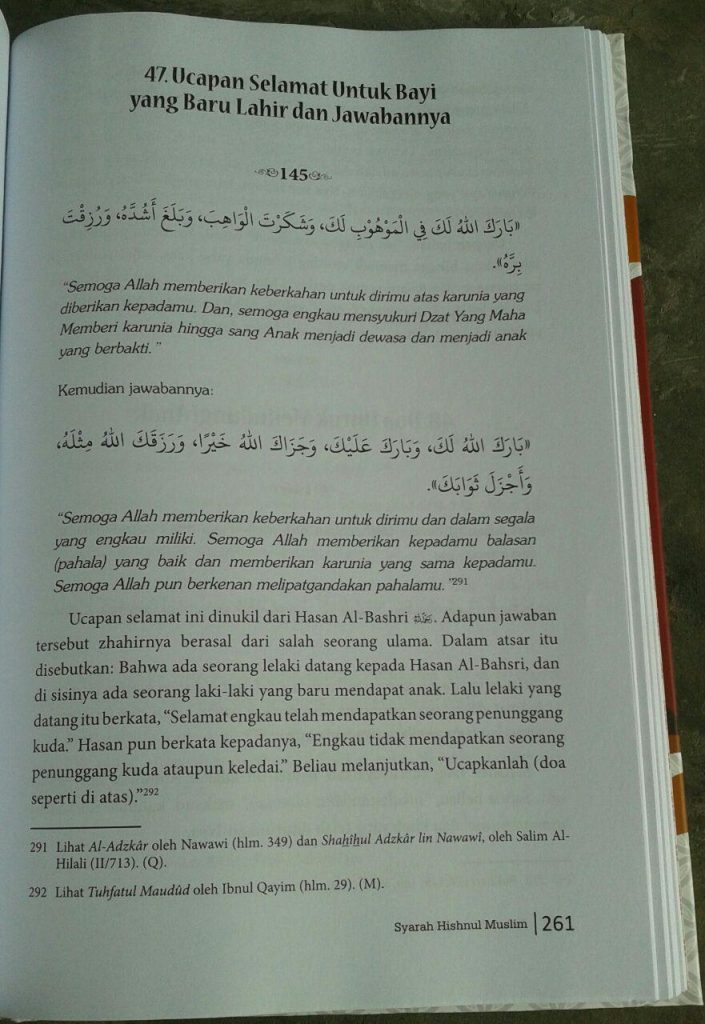 47. Ucapan Selamat Untuk Bayi
yang Baru Lahir dan Jawabannya
145
«بَارَكَ اللهُ لَكَ فِي الْمَوْهُوْبِ لَكَ، وَشَكَرْتَ الْوَاهِبَ، وَبَلَغَ أَشُدَّهُ، وَرُزِقْتَ
بِرَّهُ».
"Semoga Allah memberikan keberkahan untuk dirimu atas karunia yang
diberikan kepadamu. Dan, semoga engkau mensyukuri Dzat Yang Maha
Memberi karunia hingga sang Anak menjadi dewasa dan menjadi anak
yang berbakti."
Kemudian jawabannya:
«بَارَكَ اللهُ لَكَ، وَبَارَكَ عَلَيْكَ، وَجَزَاكَ اللهُ خَيْرًا، وَرَزَقَكَ اللهُ مِثْلَهُ،
وَأَجْزَلَ ثَوَابَكَ».
"Semoga Allah memberikan keberkahan untuk dirimu dan dalam segala
yang engkau miliki. Semoga Allah memberikan kepadamu balasan
(pahala) yang baik dan memberikan karunia yang sama kepadamu.
Semoga Allah pun berkenan melipatgandakan pahalamu."291
Ucapan selamat ini dinukil dari Hasan Al-Bashri. Adapun jawaban
tersebut zhahirnya berasal dari salah seorang ulama. Dalam atsar itu
disebutkan: Bahwa ada seorang lelaki datang kepada Hasan Al-Bahsri, dan
di sisinya ada seorang laki-laki yang baru mendapat anak. Lalu lelaki yang
datang itu berkata, "Selamat engkau telah mendapatkan seorang penunggang
kuda." Hasan pun berkata kepadanya, "Engkau tidak mendapatkan seorang
penunggang kuda ataupun keledai." Beliau melanjutkan, "Ucapkanlah (doa
seperti di atas)."292
291 Lihat Al-Adzkâr oleh Nawawi (hlm. 349) dan Shahîhul Adzkâr lin Nawawî, oleh Salim Al-
Hilali (II/713). (Q).
292 Lihat Tuhfatul Maudûd oleh Ibnul Qayim (hlm. 29). (M).
Syarah Hishnul Muslim | 261